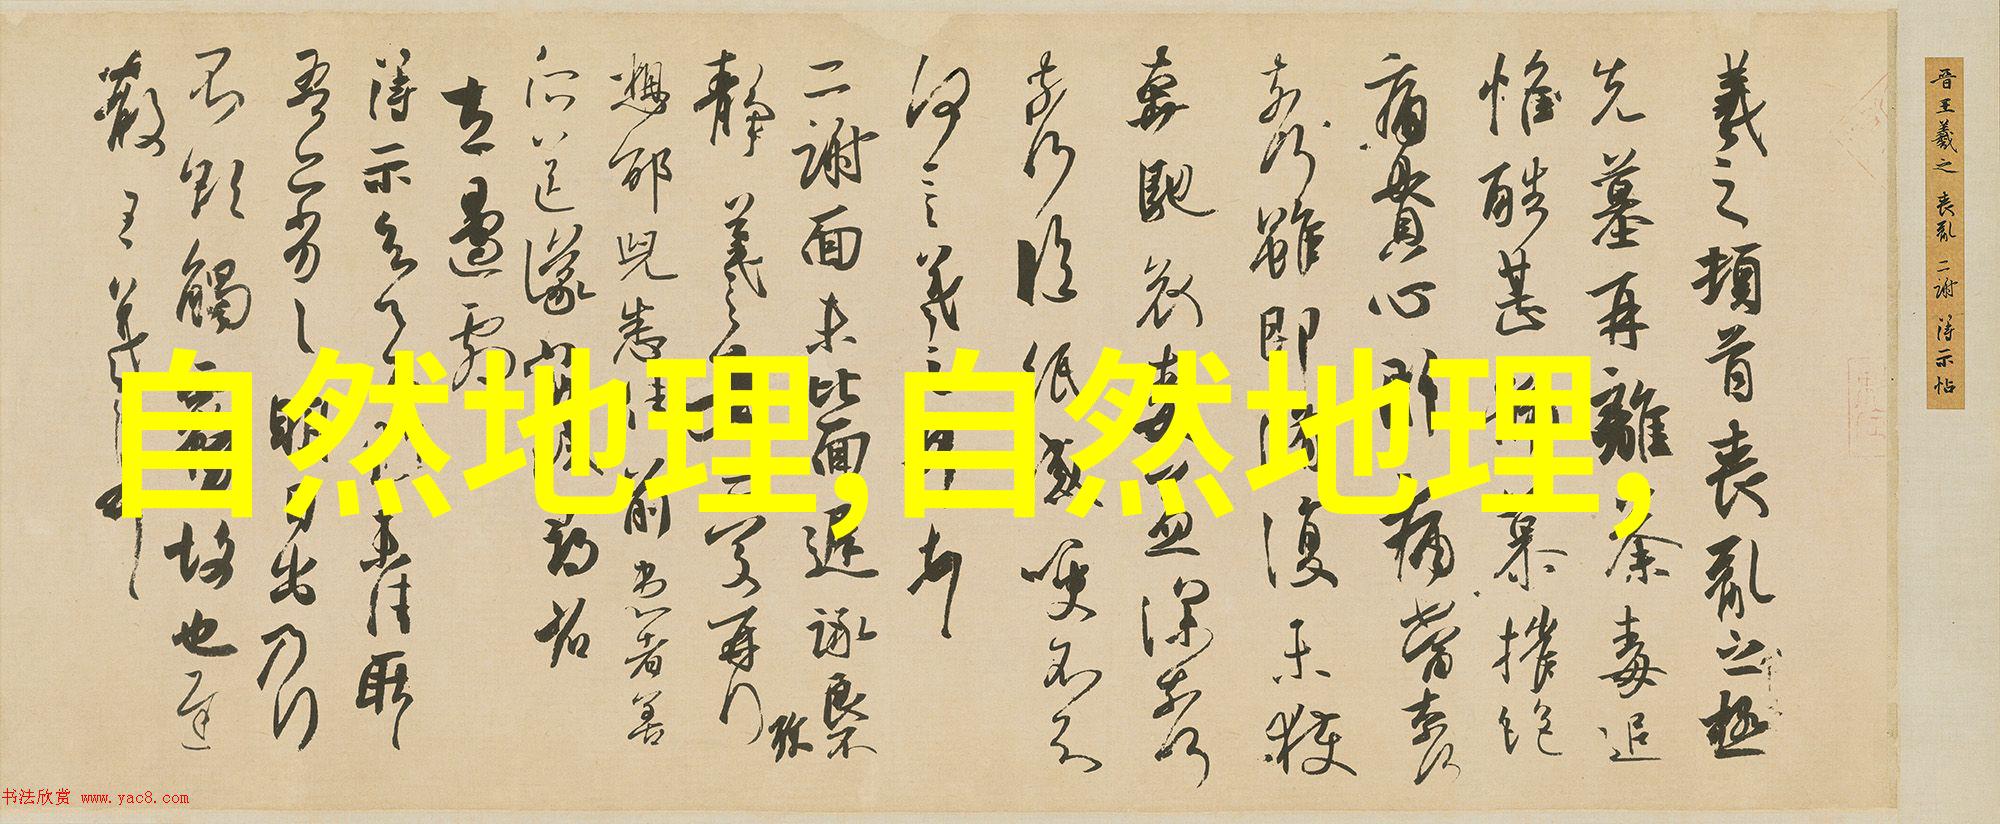 晉王羲之 喪亂 二謝 得示帖
羲之頓首喪亂之極
先墓再離荼毒追
惟酷甚號慕摧絕
痛貫心肝痛當奈何
奈何雖即脩復未獲
奔馳哀毒益深奈何
奈何臨紙感哽不知
何言羲之頓首頓首
二謝面未比面遲詠良不
靜羲之女愛再拜
想邵兒悉佳前患者善
左邊劇
得示知足下猶未佳耿耿
吾亦劣劣明日出乃行
不欲觸霧故也遲
散王羲之頓首
自然地理,自然地理,
书法欣赏 www.yac8.com